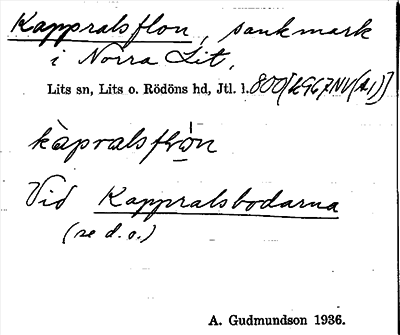 Kappralsflon, sankmark
i Norra Lit,
Lits sn, Lits o. Rödöns hd, Jtl. l.
Vid Kappralsbodarna
(se d.o.)
A. Gudmundson 1936.